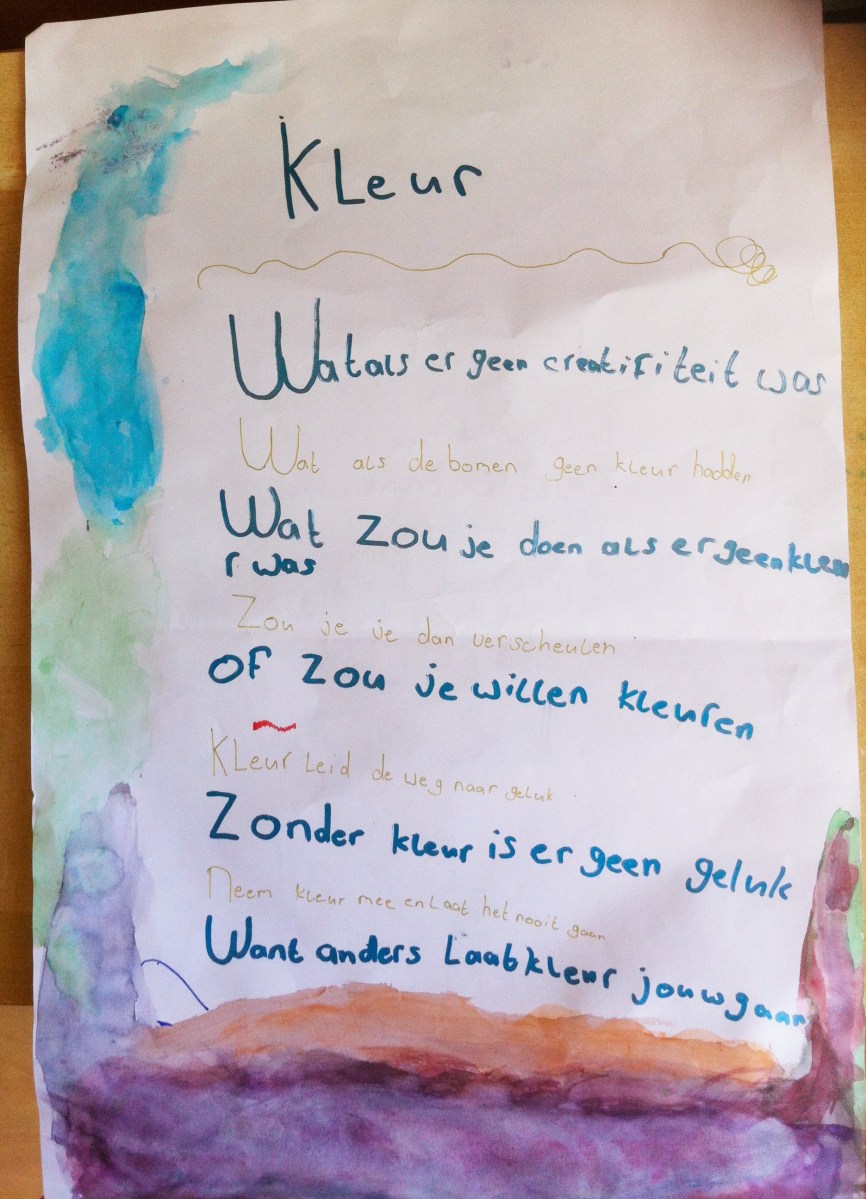 Kleur
Wat als er geen creatifiteit was
Wat als de bomen geen kleur hadden
Wat zou je doen als er geen kleu
r was
Zou je je dan verscheulen
of zou je willen kleuren
Kleur leid de weg naar geluk
Zonder kleur is er geen geluk
Neem kleur mee en laat het nooit gaan
Want anders laab kleur jouw gaan